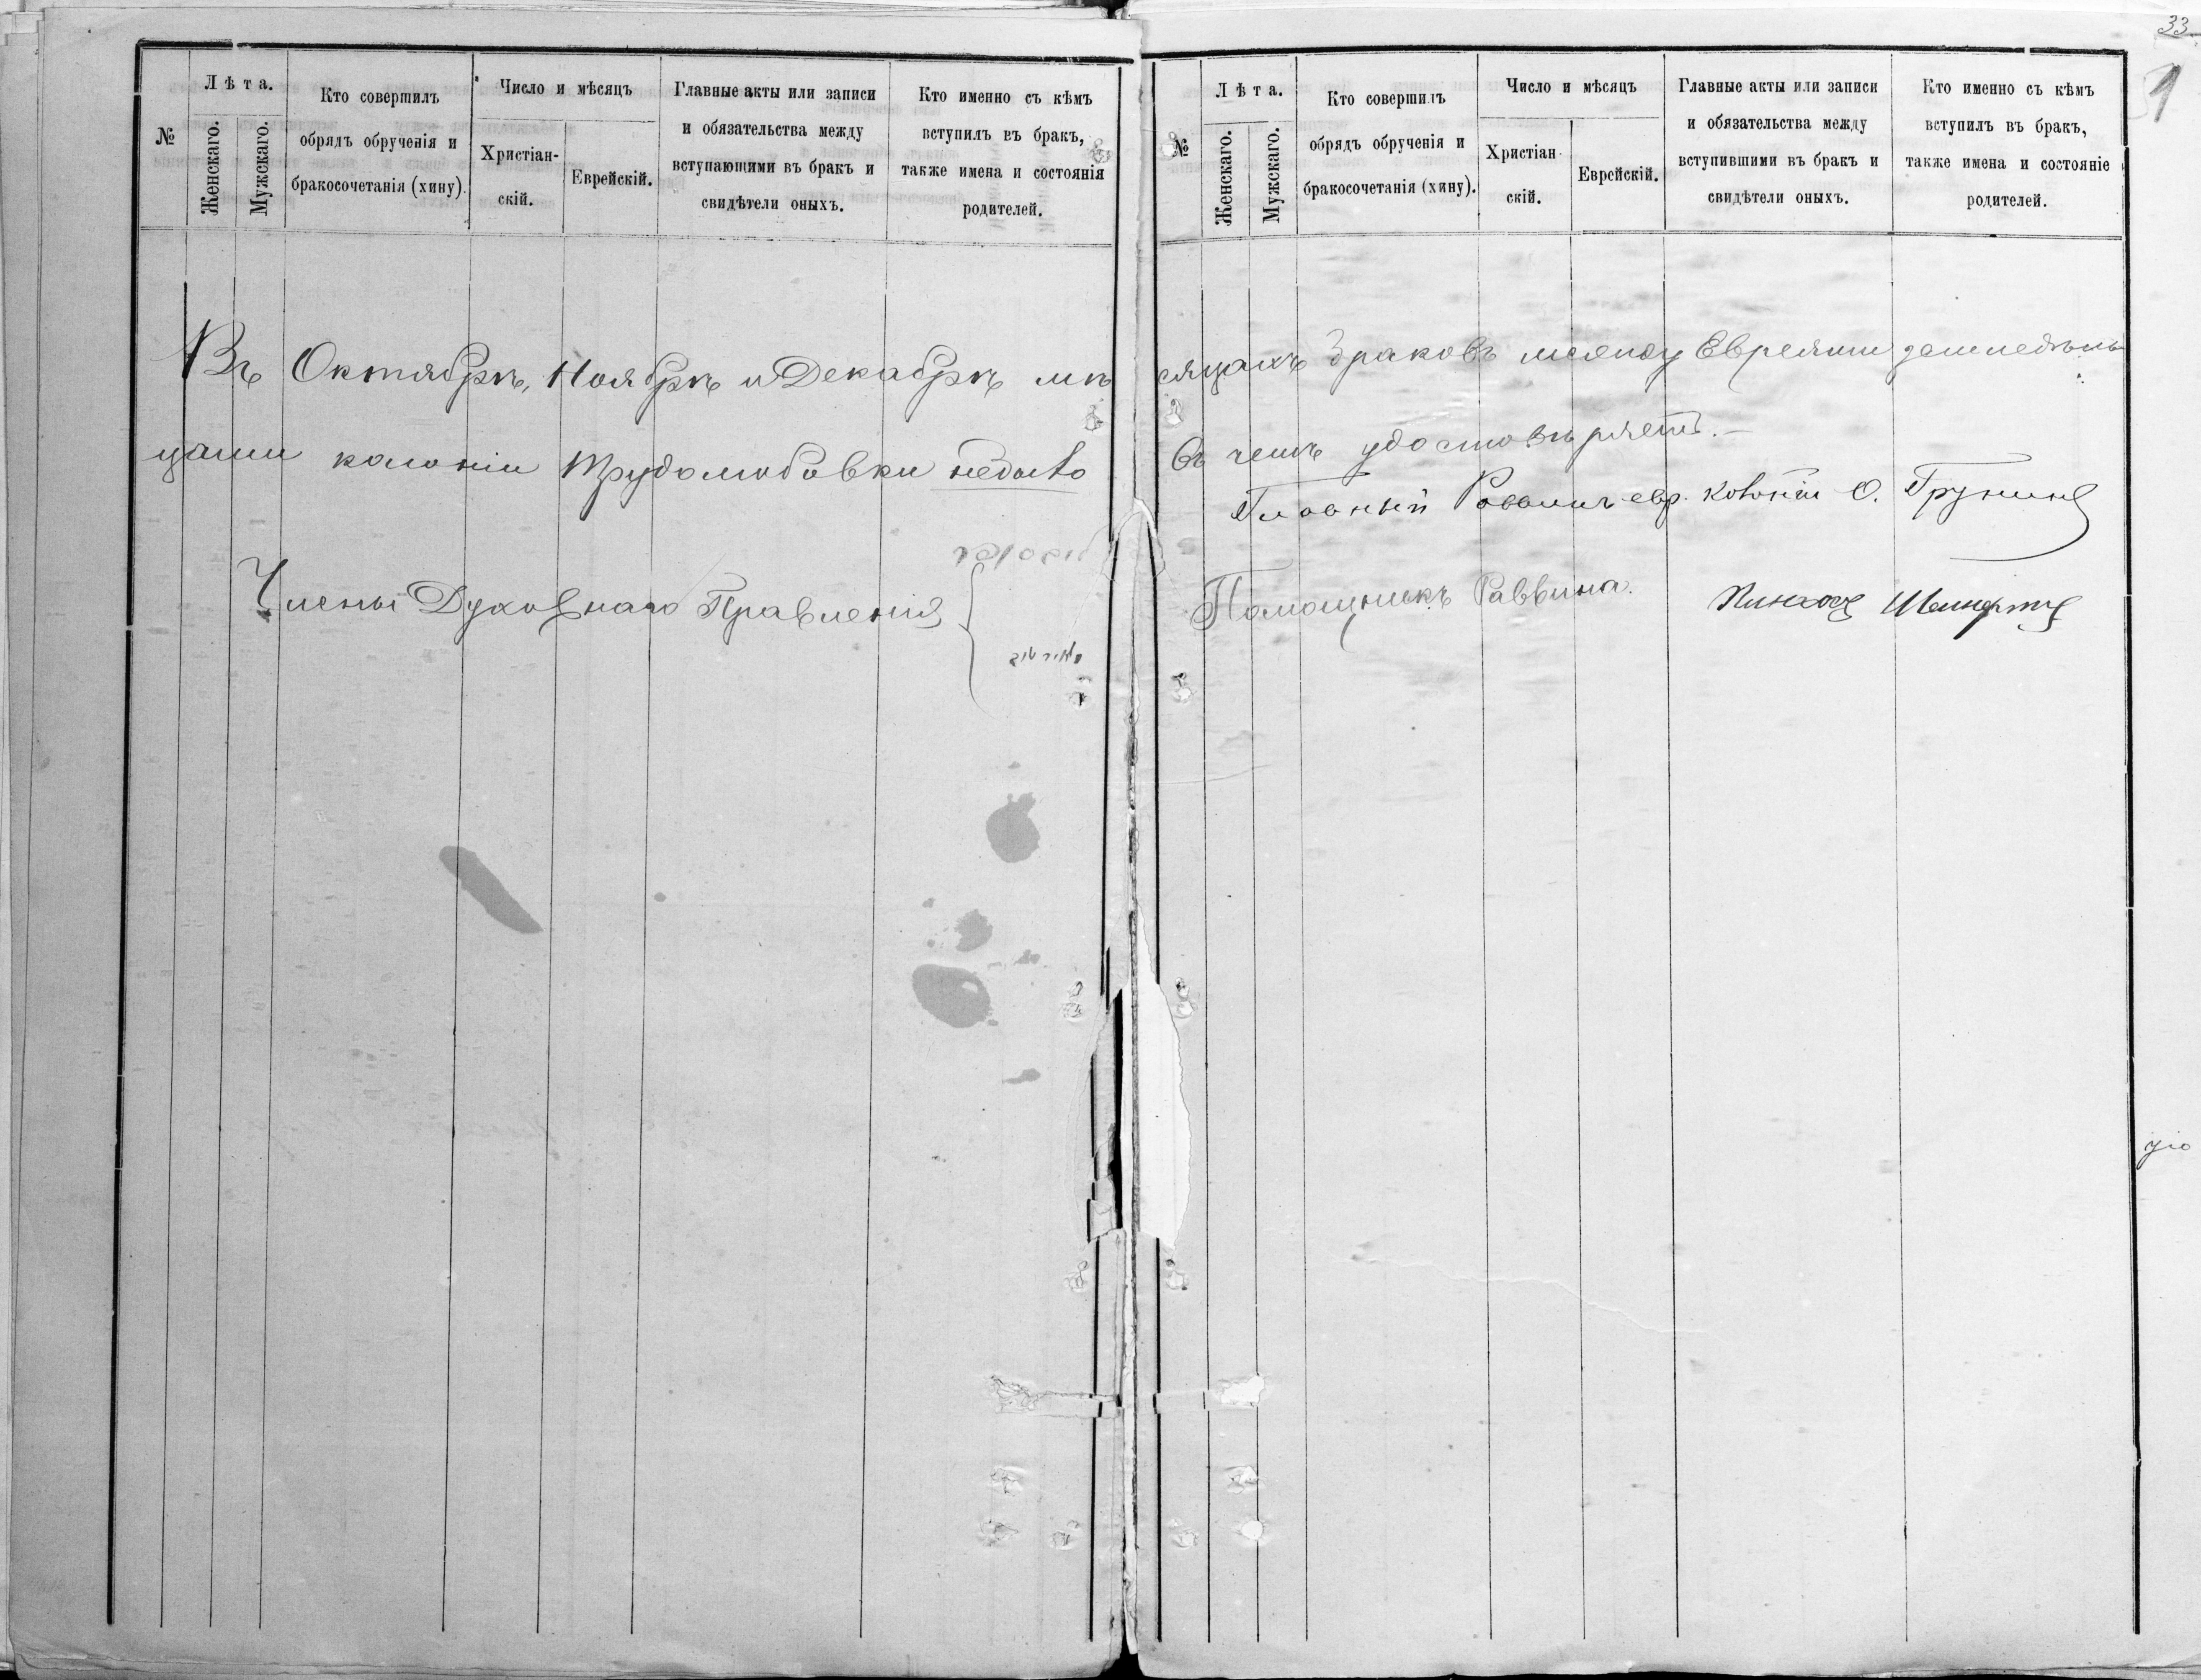 33
1
№
Лѣта.
Женскаго.
Мужскаго.
Кто совершилъ
обрядъ обрученія и
бракосочетанія (хину).
Число и мѣсяцъ
Христіан-
скій.
Еврейскій.
Главные акты или записи
и обязательства между
вступающими въ бракъ и
свидѣтели оныхъ.
Кто именно съ кѣмъ
вступилъ въ бракъ,
также имена и состоянія
родителей.
№
Лѣта.
Женскаго.
Мужскаго.
Кто совершилъ
обрядъ обрученія и
бракосочетанія (хину).
Число и мѣсяцъ
Христіан-
скій.
Еврейскій.
Главные акты или записи
и обязательства между
вступившими въ бракъ и
свидѣтели оныхъ.
Кто именно съ кѣмъ
вступилъ въ бракъ,
также имена и состояніе
родителей.
Въ Октябрѣ, Ноябрѣ и Декабрѣ мѣсяцахъ браковъ между Евреями земледѣль
цами колоніи Трудолюбовки небыло Въ чемъ удостовѣряетъ.-
Главный Раввинъ евр. колоній О.
Члены Духовнаго Правленія
Помощникъ Раввина.